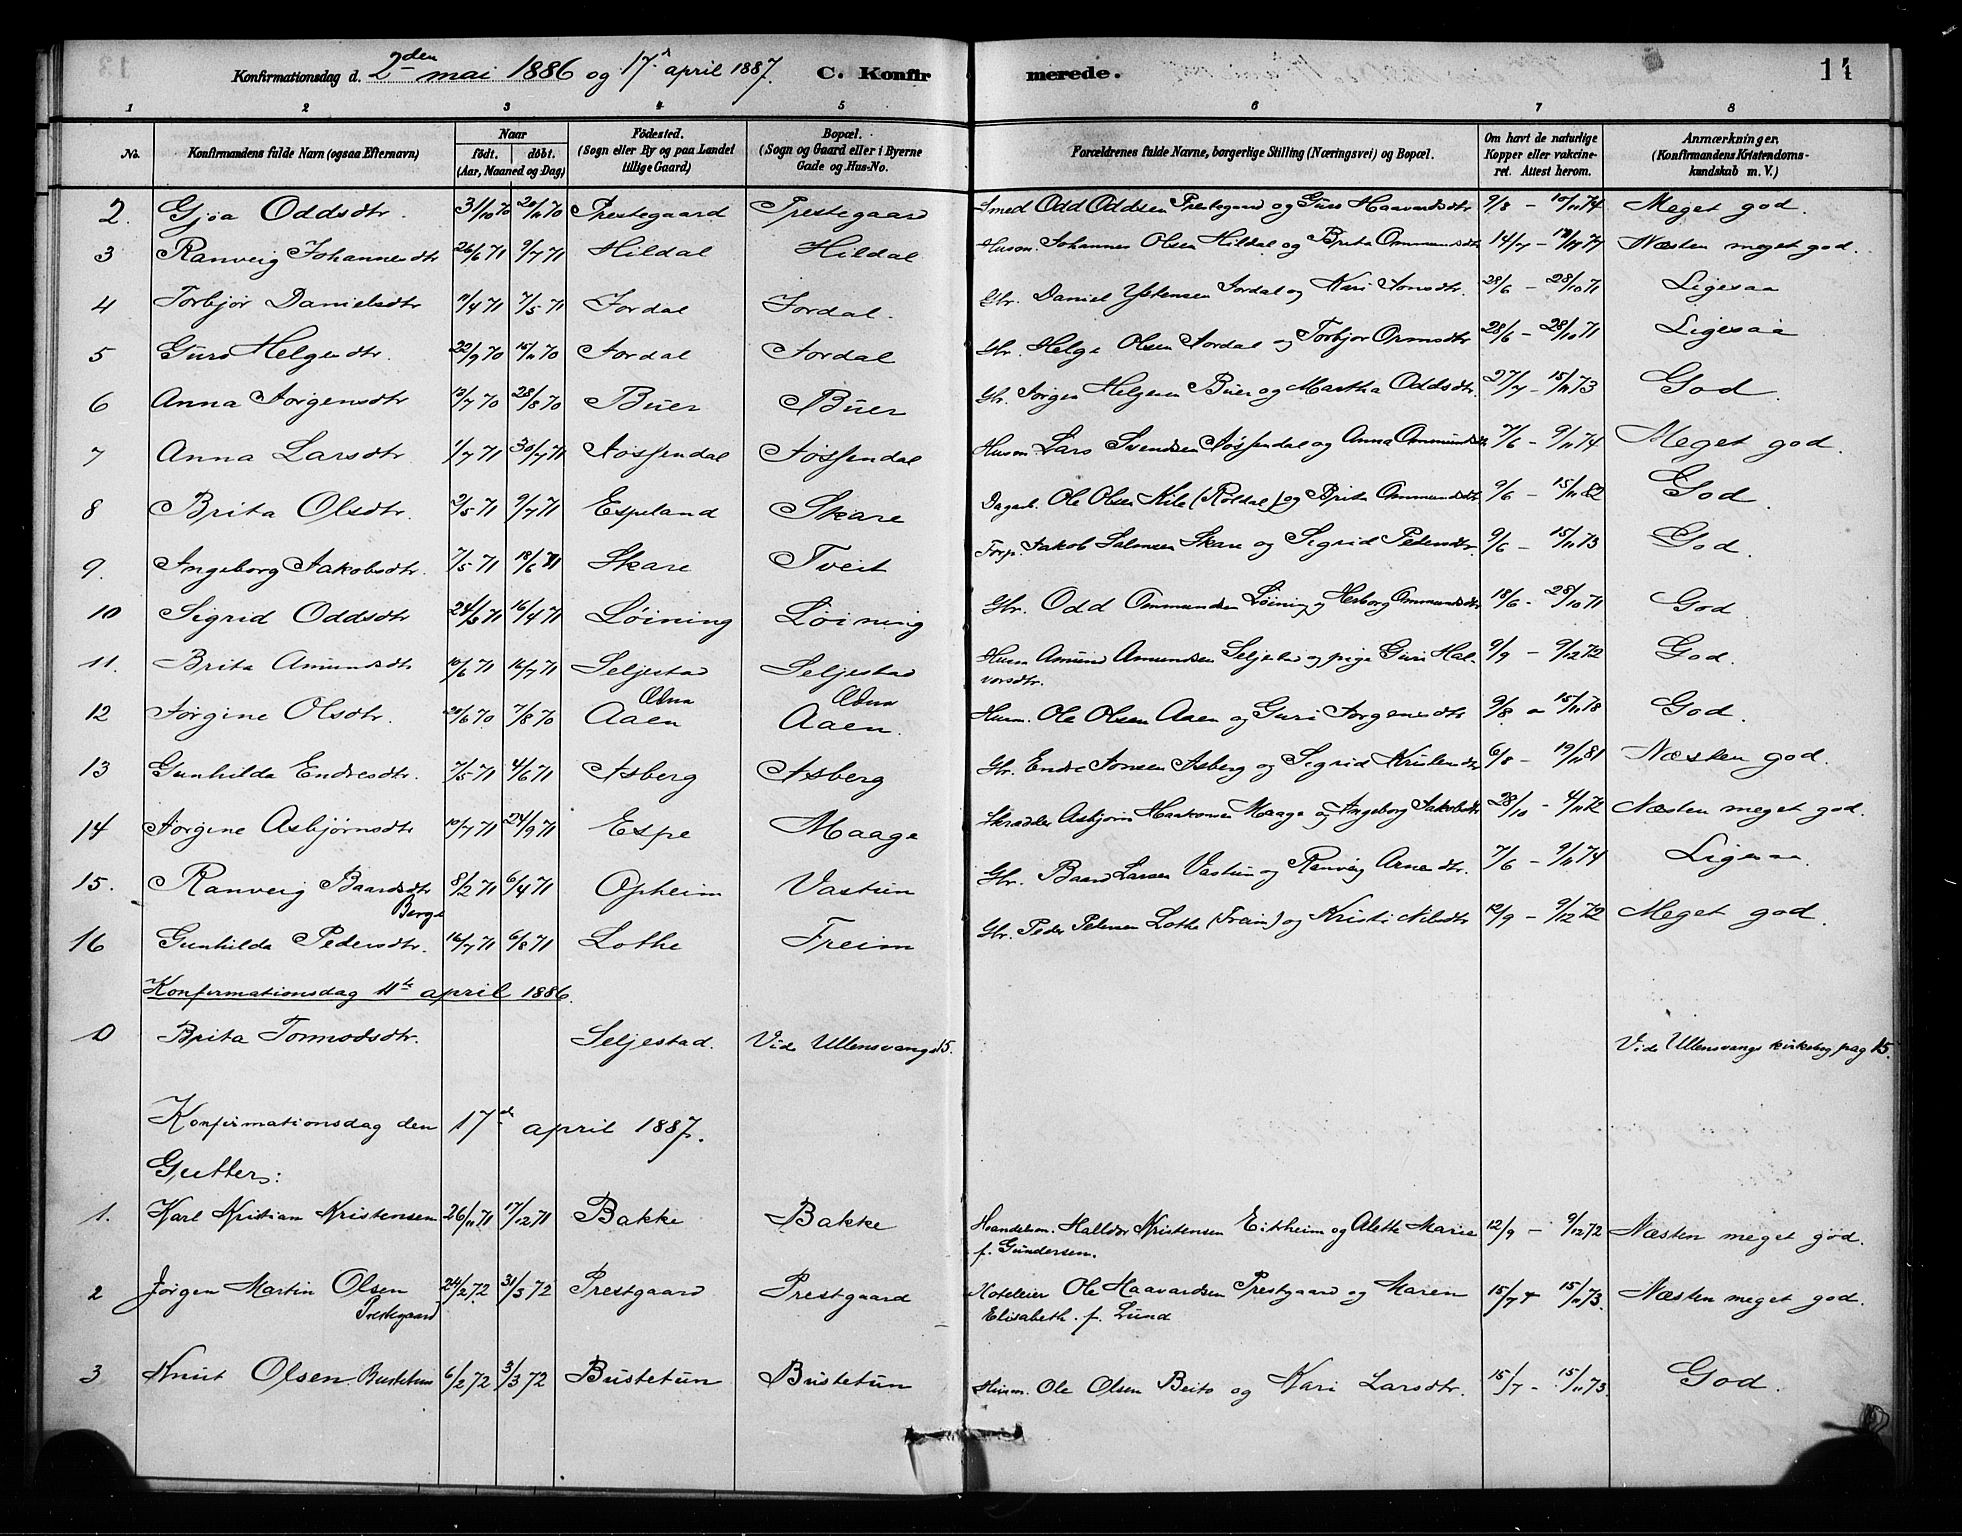 Konfirmationsdag d. 2den mai 1886 og 17d april 1887. C. Konfir merede. 14
1 2 3 4 5 6 7 8
No. Konfirmandens fulde Navn (ogsaa Efternavn) Naar födt. döbt. (Aar, Maaned og Dag) Födested. (Sogn eller By og paa Landet tillige Gaard) Bopæl. (Sogn og Gaard eller i Byerne Gade og Hus-No. Forældrenes fulde Navne, borgerlige Stilling (Næringsvei) og Bopæl. Om havt de naturlige Kopper eller vakcineret. Attest herom. Anmærkninger, (Konfirmandens Kristendomskundskab m. V.)
2. Gjøa Oddsdtr. 31/10 70 20/11 70 Prestegaard Prestegaard Smed Odd Oddsen Prestegaard og Guro Haavardsdtr 9/8 - 10/11 74 Meget god.
3 Ranveig Johannesdtr 26/6 71 9/7 71 Hildal Hildal Husm. Johannes Olsen Hildal og Brita Ommundsdtr 14/7 - Næsten meget god.
4 Torbjør Danielsdtr 7/5 71 Jordal Jordal. Gbr. Daniel Jordal og Kari Jonsdtr. 28/6 - 28/10 71 Ligesaa
5 Guro Helgesdtr. 22/9 70 15/11 70 Jordal Jordal Gbr. Helge Olsen Jordal og Torbjør Ormsdtr 28/6 - 28/10 71 Ligesaa
6 Anna Jørgensdtr 13/7 70 28/8 70 Buer Buer Gbr. Jørgen Helgesen Buer og Martha Oddsdtr. 27/7 - 15/11 73 God.
7 Anna Larsdtr 1/7 71 30/7 71 Jøssendal Jøssendal Husm. Lars Svendsen Jøssendal og Anna Ommundsdtr 7/6 - 9/11 74 Meget god.
8 Brita Olsdtr. 2/5 71 9/7 71 Espeland Skare Dagarb. Ole Olsen Kile (Røldal) og Brita Ommundsdtr 9/6 - 15/11 82 God
9. Ingeborg Jakobsdtr. 7/5 71 18/6 71 Skare Tveit Forp. Jakob Salonsen Skare og Sigrid Pedersdtr. 9/6 - 15/11 73 God.
10 Sigrid Oddsdtr 16/4 71 Løining Løining Gbr. Odd Ommundsen Løining og Herborg Ommundsdtr 18/6 - 28/10 71 God
11. Brita Amundsdtr 10/6 71 16/7 71 Seljestad Seljestad Husm Amund Amundsen Seljestad og pige Guri Halvorsdtr. 9/9 - 9/12 72 God.
12 Jørgine Olsdtr. 20/6 70 7/8 70 Aaen Odda Aaen. Odda Husm. Ole Olsen Aaen og Guri Jørgensdtr 9/8 - 15/11 78 God.
13 Gunhilda Endresdtr. 7/5 71 4/6 71 Isberg Isberg Gbr. Endre Jonsen Isberg og Sigrid Kristensdtr 6/8 - 19/11 81 Næsten god.
14 Jørgine Asbjørnsdtr 10/7 71 24/9 71 Espe Maage Skrædder Asbjørn Haakonsen Maage og Ingeborg Jakobsdtr 28/10 - 4/11 72 Næsten meget god.
15. Ranveig Baardsdtr 8/2 71 6/4 71 Opheim Vastun Gbr. Baard Larsen Vastun og Ranveig Arnesdtr. 7/6 - 9/11 74 Ligesaa
Berge
16 Gunhilda Pedersdtr. 16/7 71 6/8 71 Lothe Freim Gbr. Peder Pedersen Lothe (Freim) og Kristi Nilsdtr 12/9 - 9/12 72 Meget god.
Konfirmationsdag 11te april 1886.
0 Brita Tormodsdtr. Seljestad. Vide Ullensvang 15. Vide Ullensvangs kirkebog pag 15.
Konfirmationsdag den 17de april 1887.
Gutter:
1. Karl Kristian Kristensen 26/11 71 17/12 71 Bakke Bakke Handelsm. Halldor Kristensen Eitrheim og Alette Marie f. Gundersen. 12/9 - 9/12 72 Næsten meget god.
2 Jørgen Martin Olsen Prestegaard 24/2 72 31/3 72 Prestgaard Prestgaard Hoteleier Ole Haavardsen Prestgaard og Maren Elisabeth f. Lund 15/7 - 15/11 73. Næsten meget god.
3 Knut Olsen Bustetun 6/2 72 3/3 72 Bustetun Bustetun Husm. Ole Olsen Beito og Kari Larsdtr. 15/7 - 15/11 73. God.